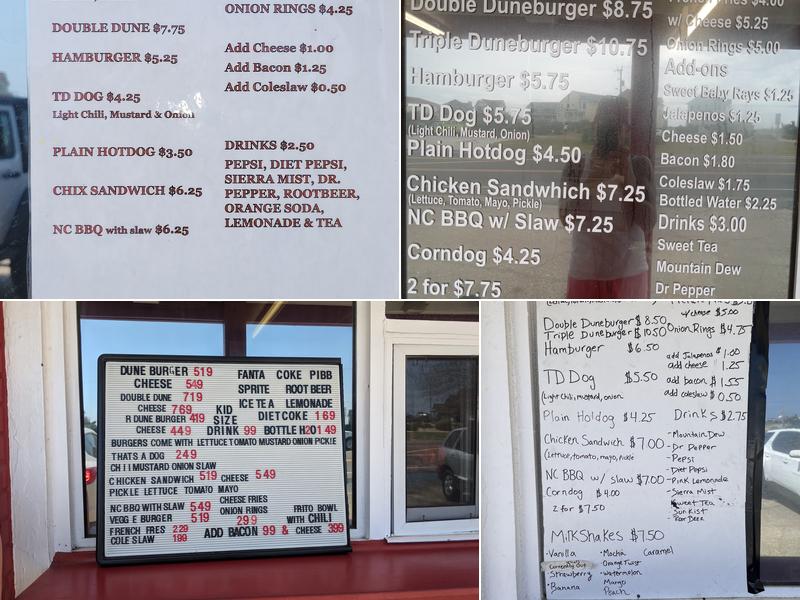 ONION RINGS $4.25
DOUBLE DUNE $7.75
HAMBURGER $5.25
Add Cheese $1.00
Add Bacon $1.25
Add Coleslaw $0.50
TD DOG $4.25
Light Chili, Mustard & Onion
PLAIN HOTDOG $3.50
CHIX SANDWICH $6.25
NC BBQ with slaw $6.25
DRINKS $2.50
PEPSI, DIET PEPSI,
SIERRA MIST, DR.
PEPPER, ROOTBEER,
ORANGE SODA,
LEMONADE & TEA
Double Duneburger $8.75
Triple Duneburger $10.75
Hamburger $5.75
TD Dog $5.75
(Light Chili, Mustard, Onion)
Plain Hotdog $4.50
Chicken Sandwhich $7.25
(Lettuce, Tomato, Mayo, Pickle)
NC BBQ w/ Slaw $7.25
Corndog $4.25
2 for $7.75
w/ Cheese $5.25
Onion Rings $5.00
Add-ons
Sweet Baby Rays $1.25
Jalapenos $1.25
Cheese $1.50
Bacon $1.80
Coleslaw $1.75
Bottled Water $2.25
Drinks $3.00
Sweet Tea
Mountain Dew
Dr Pepper
DUNE BURGER 519
CHEESE 549
DOUBLE DUNE 719
CHEESE 769
R DUNE BURGER 419
CHEESE 449
FANTA COKE PIBB
SPRITE ROOT BEER
ICE TEA LEMONADE
KID
SIZE
DRINK 99
DIET COKE 169
BOTTLE H2O 149
BURGERS COME WITH LETTUCE TOMATO MUSTARD ONION PICKLE
THATS A DOG 249
CHILI MUSTARD ONION SLAW
CHICKEN SANDWICH 519 CHEESE 549
PICKLE LETTUCE TOMATO MAYO
NC BBQ WITH SLAW 549
VEGG E BURGER 519
FRENCH FRES 229
COLE SLAW 199
CHEESE FRIES
ONION RINGS
299
FRITO BOWL
WITH CHILI
ADD BACON 99 & CHEESE 399
w/cheese $5.00
Double Duneburger $8.50
Triple Duneburger $10.50
Hamburger $6.50
Onion Rings $4.75
add Jalapenos $1.00
add cheese 1.25
add bacon $1.55
add coleslaw $0.50
TD Dog $5.50
(Light chili, mustard, onion
Plain Hotdog $4.25
Chicken Sandwich $7.00
(Lettuce, tomato, mayo, pickle
NC BBQ w/ slaw $7.00
Corndog $4.00
2 for $7.50
Drinks $2.75
-Mountain Dew
-Dr Pepper
-Pepsi
-Diet Pepsi
-Pink Lemonade
-Sierra Mist
Sweet Tea
-Sunkist
-Root Beer
Milkshakes $7.50
•Vanilla
Currently Out
Strawberry
•Banana
•Mocha
Orange Twist
•Watermelon
Mango
Peach
Caramel